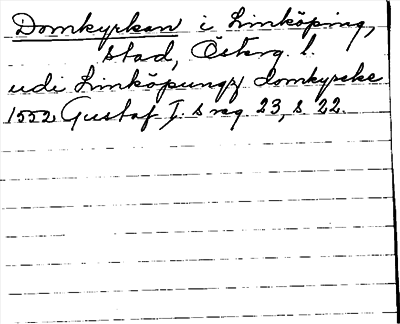 Domkyrkan i Linköping,
stad, Österg. l.
udi Linköpungx domkyrcke
1552 Gustaf I:s reg. 23, s. 22.